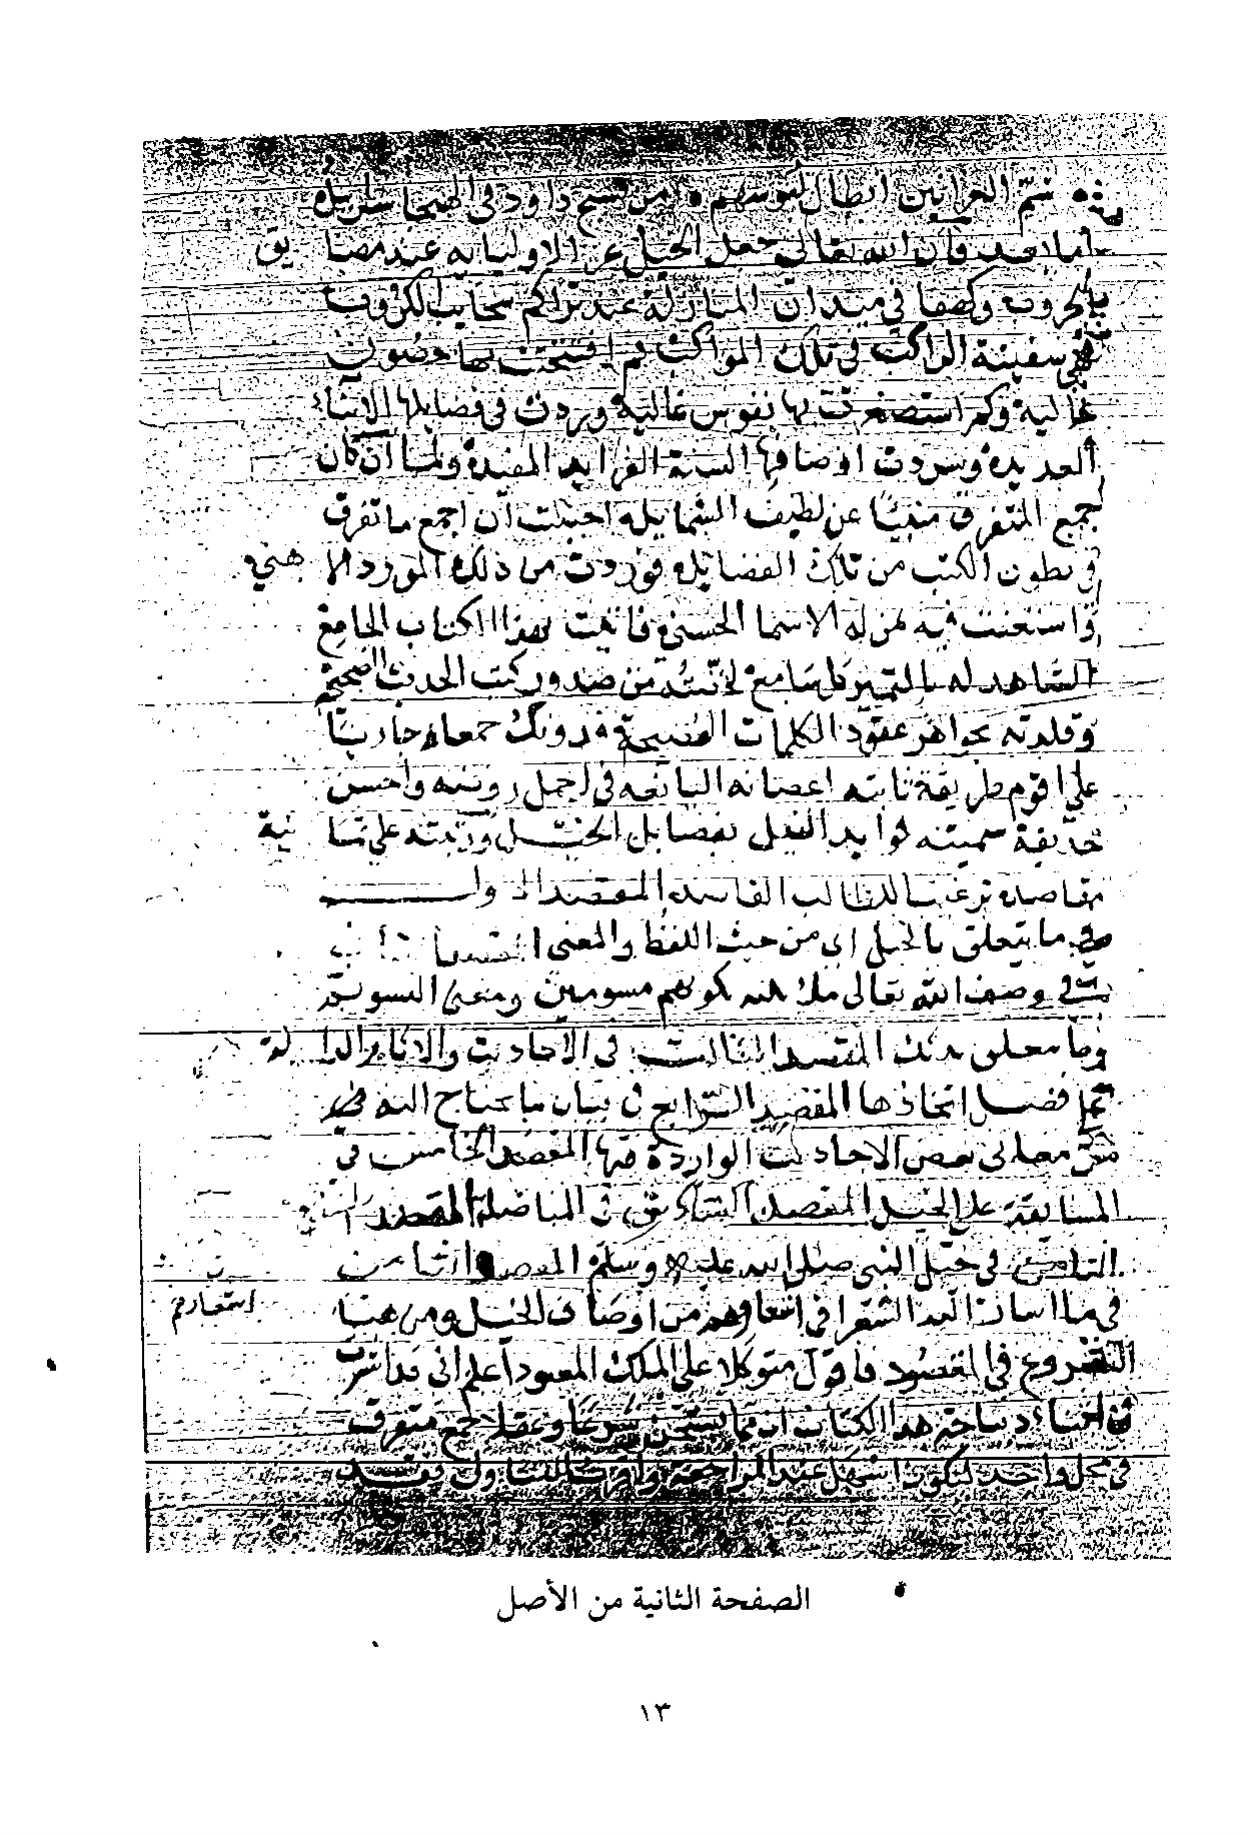 شم العرانين ابطال لبوسهم من نسج داود في الهيجا سرابيل
اما بعد فان الله تعالى جعل الخيل عز الاوليائه عند مضايق
الحروب وكهفا في ميدان المنازلة عند تراكم سحايب الكروب
فهي سفينة الراكب في تلك المواكب كم افتتحت بها حصون
عالية وكم استصغرت بها نفوس غالية وردت في فضايلها الانباء
العديدة وسردت اوصافها السنة الفرايد المفيدة ولما ان كان
جميع المتفرق منبئا عن لطيف الشمايل احببت ان اجمع ما تفرق
في بطون الكتب من تلك الفضايل فوردت من ذلك المورد الاهني
واستعنت فيه بمن له الاسما الحسنى فاتيت بهذا الكتاب الجامع
الشاهد له بالتميز كل سامع من صدور كتب الحديث الصحيحة
وقلدته بجواهر عقود الكلمات الفصيحة فدونك جمعا جاريا
على اقوم طريقة نابتة اغصانه اليانعة في اجمل روضه واحسن
حديقة سميته فوايد النيل بفضايل الخيل ورتبته على ثمانية
مقاصد ترغيبا للطالب القاصد المقصد الاول
فيما يتعلق بالخيل اي من حيث اللفظ والمعنى المقصد الثاني
في وصف الله تعالى ملائكته بكونهم مسومين ومعنى التسويم
وما يتعلق بذلك المقصد الثالث في الاحاديث والاثار الدالة
على فضل اتخاذها المقصد الرابع في بيان ما يحتاج اليه في
معاني بعض الاحاديث الواردة فيها المقصد الخامس في
المسابقة على الخيل المقصد السادس في المناضلة المقصد السابع
في خيل النبي صلى الله عليه وسلم المقصد الثامن
في ما اشارت اليه الشعرا في اشعارهم من اوصاف الخيل ومن هنا
اشعارهم
الشروع في المقصود فاقول متوكلا على الملك المعبود اعلم اني قد اشرت
في اثناء ديباجة هذا الكتاب ان مما يستحسن شرعا وعقلا جمع متفرق
في محل واحد ليكون اسهل عند المراجعة
الصفحة الثانية من الأصل
١٣